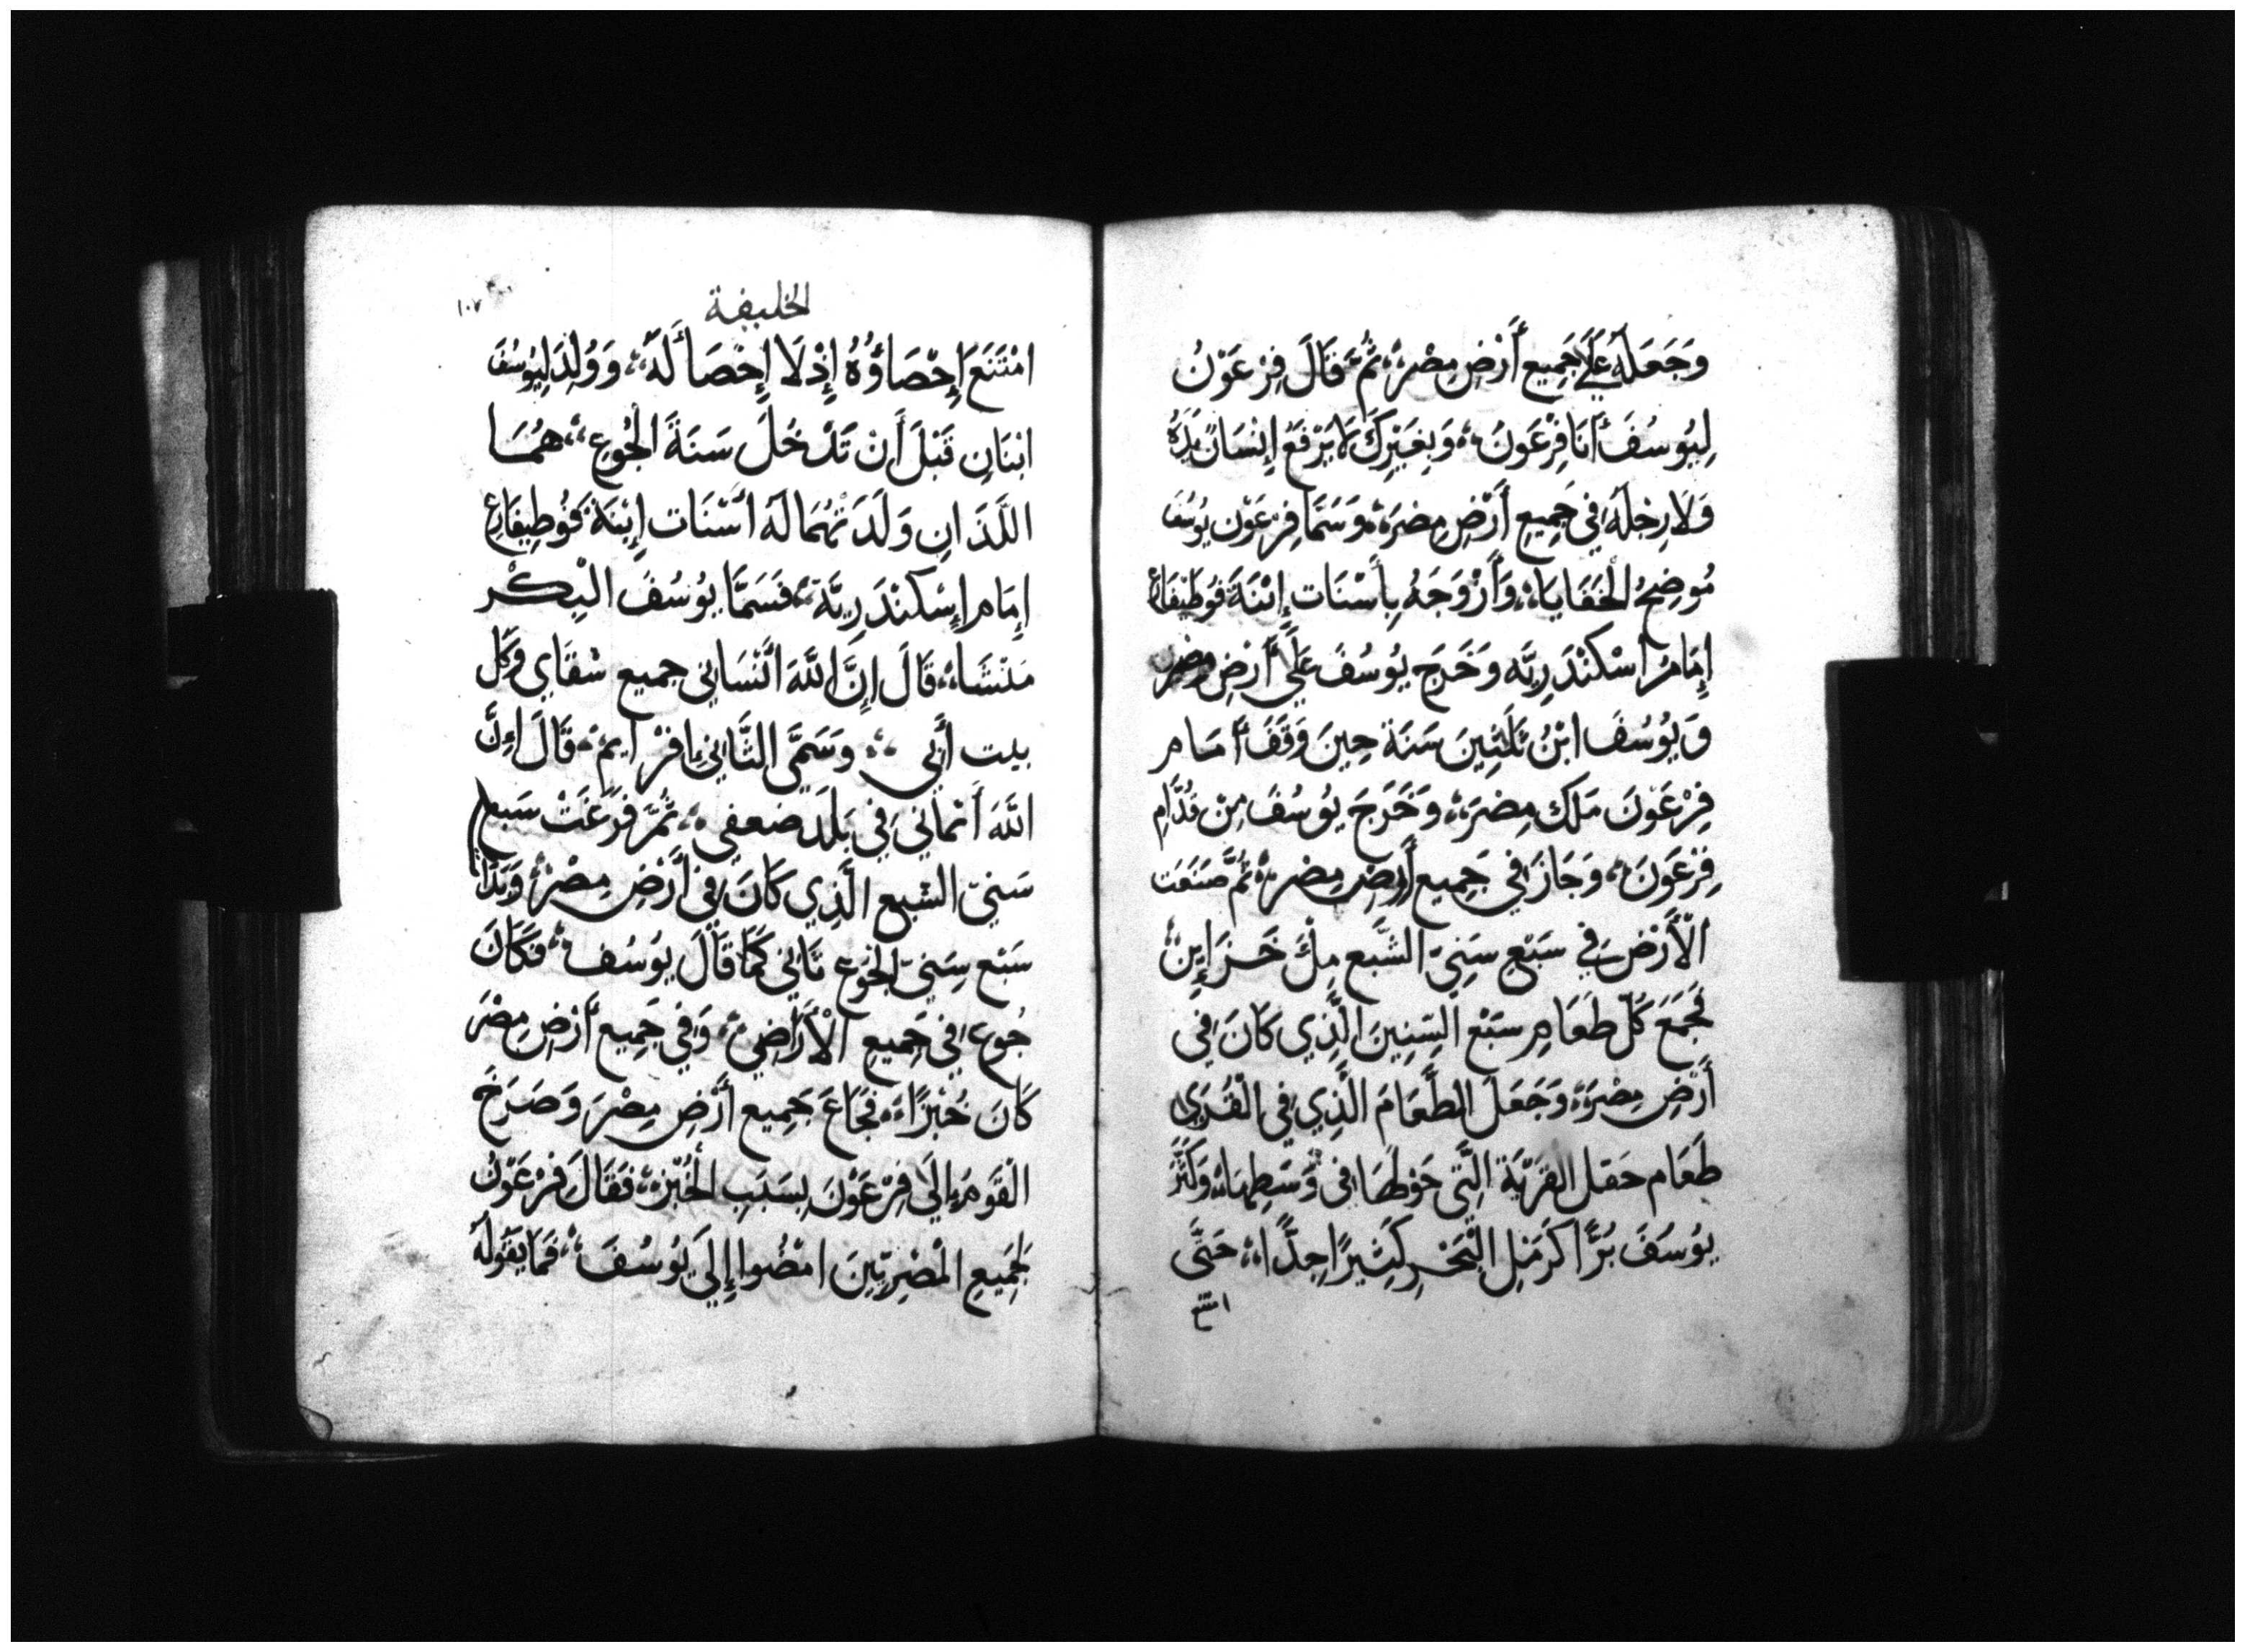 وَجَعَلَهُ عَلَي جَمِيع أَرْضِ مِصْرَ ثُمَّ قَالَ فِرْعَوْنُ
لِيُوسُفَ أَنَا فِرْعَوْنَ وَبِغَيْرِكَ لَا يَرْفَعُ إِنْسَانٌ يَدَهُ
وَلَا رِجْلَهُ فِي جَمِيعِ أَرْضِ مِصْرَ وَسَمَّا فِرْعَوْن يُوسُف
مُوضِحُ الْخَفَايَا وَأَزْوَجَهُ بِأَسْنَات إِبْنَةَ فُوطِيفَارْع
إِمَامُ اسْكَنْدَرِيَّه وَخَرَج يُوسُفَ عَلَي أَرْضِ مِصْر
وَيُوُسُفَ ابْنُ ثَلَثِينَ سَنَة حِينَ وَقَفَ أَمَام
فِرْعَوْنَ مَلِك مِصْرَ وَخَرَجَ يُوسُفَ مِنْ قُدَّامِ
فِرْعَوْنَ وَجَازَ فِي جَمِيعِ أَرْضِ مِصْرَ ثُمَّ صَنَعَت
الْأَرْضَ فِي سَبْعِ سَنِيّ الشَّبَع مِلْءَ خَزَايِنَ
فَجَمَعَ كُلَّ طَعَامِ سَبْع السِّنِينَ الَّذِي كَانَ فِي
أَرْضِ مِصْرَ وَجَعَلَ الطَّعَامَ الَّذِي فِي الْقُرَي
طَعَام حَقْل الْقَرْيَة الَّتِي حَوْلَهَا فِي وَسَطِهَا وَكَنَزَ
يُوسَفَ بُرًّا كَرَمْلِ الْبَحْرِ كَثِيرًا جِدًّا حَتَّي
امتنع
الخليفة
١٠٧
امْتَنَعَ إِحْصَاؤُهُ إِذْ لَا إِحْصَا لَهُ وَوُلِدَ لِيُوسُفَ
ابْنَانِ قَبْلَ أَنْ تَدْخُلَ سَنَةَ الْجُوعِ هُمَا
اللَّذَانِ وَلَدَتْهُمَا لَهُ أَسْنَات إِبْنَةَ فُوطِيفَارْع
إِمَام إِسْكَنْدَرِيَّة فَسَمَّا يُوُسُفَ الْبِكْر
مَنَشَا قَالَ إِنَّ اللَّهَ أَنْسَانِي جميع شقَاي وَكل
بيت أَبِي وَسَمَّي الثَّانِي إفْرَايِمْ قَالَ إِنَّ
اللَّهَ أَنْمَانِي فِي بَلَدِ ضعفي ثُمَّ فَرَغَتْ سَبع
سَنيّ الشبع الَّذِي كَانَ فِي أَرْضِ مِصْرَ وَبَدَأ
سَبْع سِنيّ الجُوع تَاتي كَمَا قَالَ يُوُسُف فَكَانَ
جُوع فِي جَمِيعِ الْأَرَاضِي وَفِي جَمِيع أَرْضِ مِصْرَ
كَانَ خُبْزًا فَجَاعَ جَمِيع أَرْضِ مِصْرَ وَصَرَخَ
الْقَوْمُ إِلَي فِرْعَوْنَ بِسَبَبِ الْخُبْزِ فَقَالَ فِرْعَوْنُ
لِجَمِيعِ الْمِصْرِيّينَ امْضُوا إِلَي يُوسُفَ فَمَا يَقُولُهُ